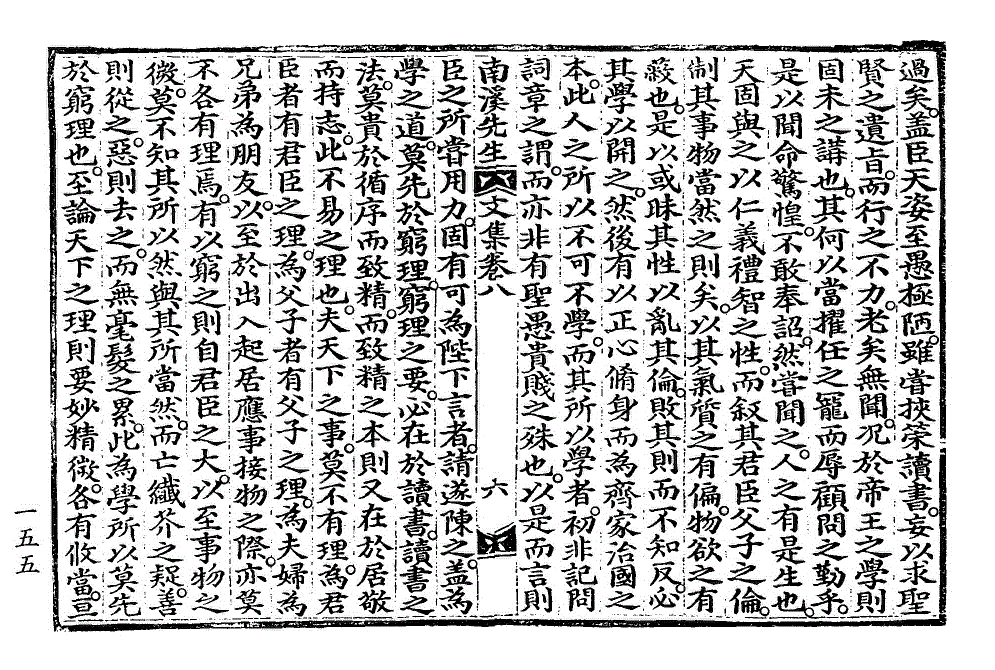 過矣盖臣天姿至愚極陋雖甞挾䇿讀書妄以求聖
賢之遺旨而行之不力老矣無聞况於帝王之學則
固未之講也其何以當擢任之寵而辱顧問之勤乎
是以聞命驚惶不敢奉詔然甞聞之人之有是生也
天固與之以仁義禮智之性而叙其君臣父子之倫
制其事物當然之則矣以其氣質之有偏物欲之有
蔽也是以或昧其性以亂其倫敗其則而不知反必
其學以開之然後有以正心脩身而為齊家治國之
本此人之所以不可不學而其所以學者初非記問
詞章之謂而亦非有聖愚貴賤之殊也以是而言則
南溪先生文集卷八 六
臣之所甞用力固有可為陛下言者請遂陳之盖為
學之道莫先於窮理窮理之要必在於讀書讀書之
法莫貴於循序而致精而致精之本則又在於居敬
而持志此不易之理也夫天下之事莫不有理為君
臣者有君臣之理為父子者有父子之理為夫婦為
兄弟為朋友以至於出入起居應事接物之際亦莫
不各有理焉有以窮之則自君臣之大以至事物之
微莫不知其所以然與其所當然而亡纖芥之疑善
則從之惡則去之而無毫髮之累此為學所以莫先
於窮理也至論天下之理則要妙精微各有攸當亘
一五五